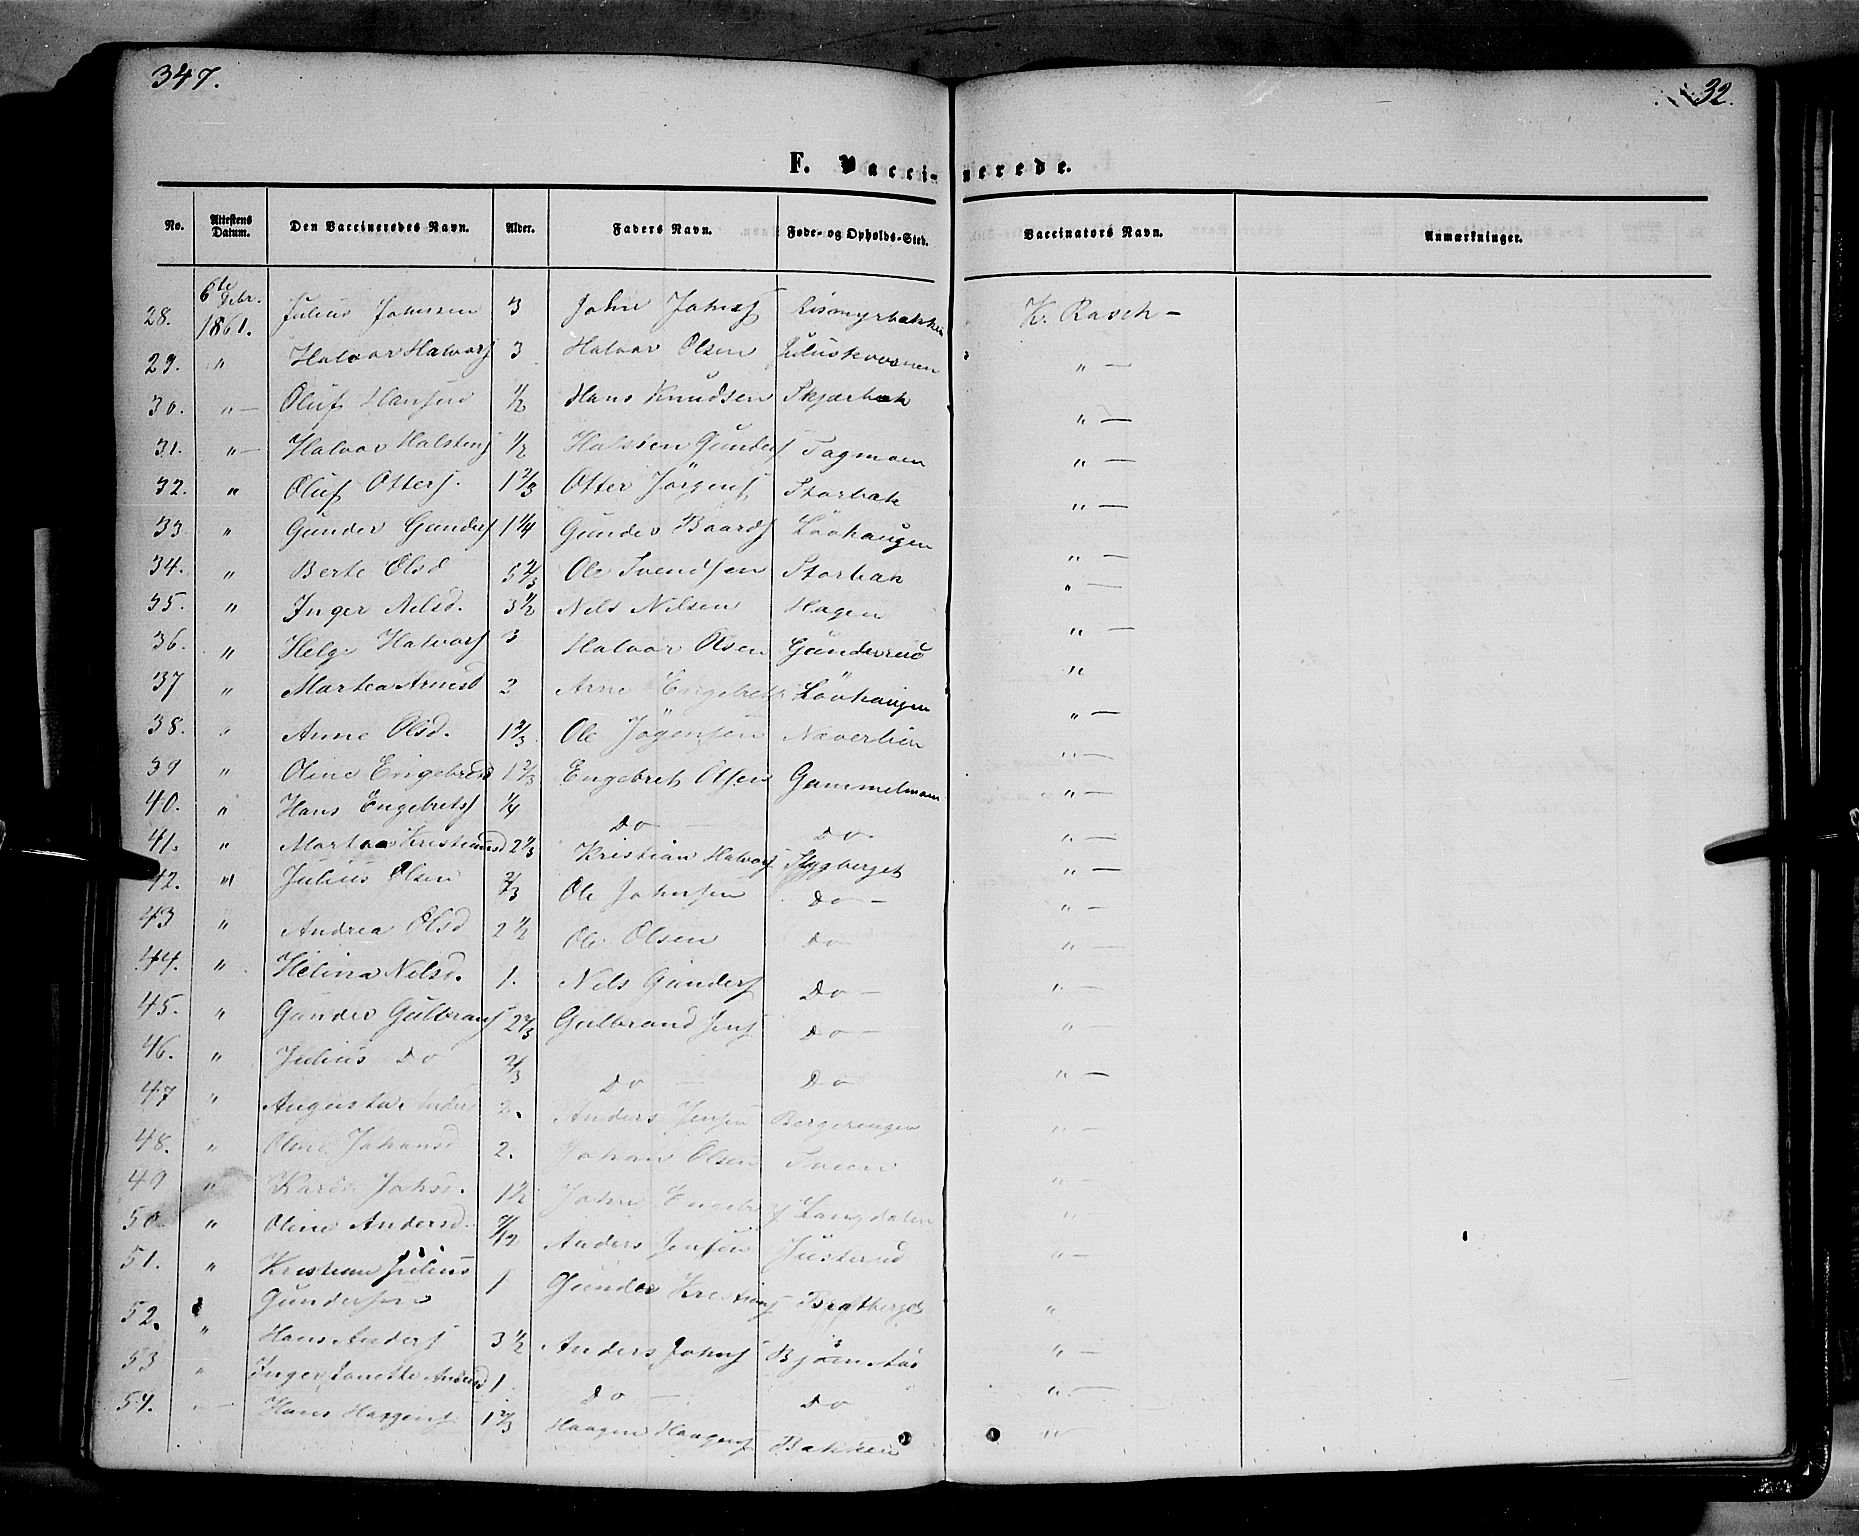 347.
32.
F. Vaccinerede.
No. Attestens Datum. Den Vaccineredes Navn. Alder. Faders Navn. Føde- og Opholds-Sted. Vaccinators Navn. Anmærkninger.
28. 6te Febr. 1861. Julius Johnsen 3 John Johnsf K. Rasch —
29. " Halvor Halvorsf 3 Halvor Olsen " —
30. " — Oluf Hansen 1/2 Hans Knudsen Skjærbak " —
31. " — Halvor Halstensf 1/2 Halsten Gundersf Tagmoen " —
32. " Oluf Ottersf. 1 2/3 Otter Jörgensf Storbak " —
33. " Gunder Gundersf 1 1/4 Gunder Baardsf Lövhaugen " —
34. " Berte Olsd 5 2/3 Ole Svendsen Storbak " —
35. " Inger Nilsd. 3 1/2 Nils Nilsen Hagen " —
36. " Helge Halvorsf 3 Halvor Olsen Gunderrud "
37 " Marthea Arnesd 2 Arne Engebrets Lövhaugen " —
38. " Anne Olsd. 1 2/3 Ole Jögensen Næverlien " —
39 " Oline Engebretsd 1 2/3 Engebret Olsen Gammelmoen " —
40. " Hans Engebretsf 1/4 Do — Do " —
41. " Marthea Kristiansd 2 1/3 Kristian Halvorsf. Stygberget " —
42. " Julius Olsen 2/3 Ole Johnsen Do — " —
43 " Andrea Olsd 2 1/2 Ole Olsen Do " —
44. " Helina Nilsd. 1. Nils Gundersf Do — " —
45. " Gunder Gulbransf 2 2/3 Gulbrand Jensf Do — " —
46. " Julius Do 2/3 Do — Do — " —
47 " Augusta Anders 2. Anders Jensen Bergerengen " —
48. " Oline Johansd 2. Johan Olsen Sveen " —
49 " Karen Johsd. 1 1/2 John Engebr sf Langdalen " —
50. " Oline Andersd. /12 Anders Jensen Justerud " —
51. " Kristian Julius Gundersen 1 Gunder Kristiansf Bratberget "
52. " Hans Andersf 3 1/2 Anders Johnsf Björn " —
53 " Inger Janette Andersd 1 Do — Do " —
54. " — Hans Haagensf 1 2/3 Haagen Haagensf Bakken "